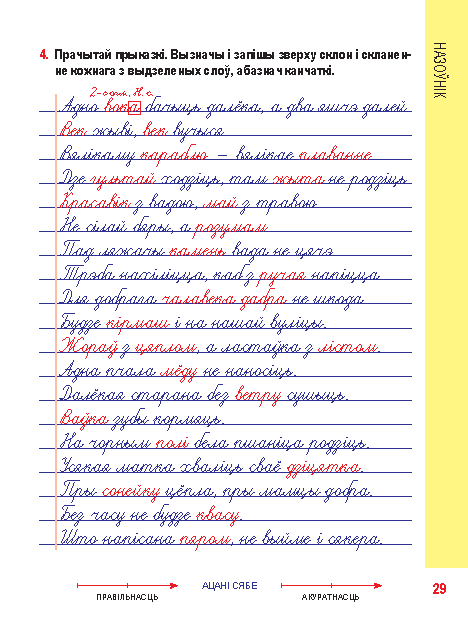 НАЗОЎНІК
4. Прачытай прыказкі. Вызначы і запішы зверху склон і скланен-
не кожнага з выдзеленых слоў, абазнач канчаткі.
2-е скл., Н. с.
Адно вока бачыць далёка, а два яшчэ далей
Век жыві, век вучыся
Вялікаму караблю – вялікае плаванне
Дзе гультай ходзіць, там жыта не родзіць
Красавік з вадою, май з травою
Не сілай бяры, а розумам
Пад ляжачы камень вада не цячэ
Трэба нахіліцца, каб з ручая напіцца
Для добрага чалавека дабра не шкода
Будзе кірмаш і на нашай вуліцы.
Жораў з цяплом, а ластаўка з лістом.
Адна пчала мёду не наносіць.
Далёкая старана без ветру сушыць.
Ваўка зубы кормяць.
На чорным полі бела пшаніца родзіць.
Усякая матка хваліць сваё дзіцятка.
Пры сонейку цёпла, пры мамцы добра.
Без часу не будзе квасу.
Што напісана пяром, не выйме і сякера.
АЦАНІ СЯБЕ
ПРАВІЛЬНАСЦЬ
АКУРАТНАСЦЬ
29